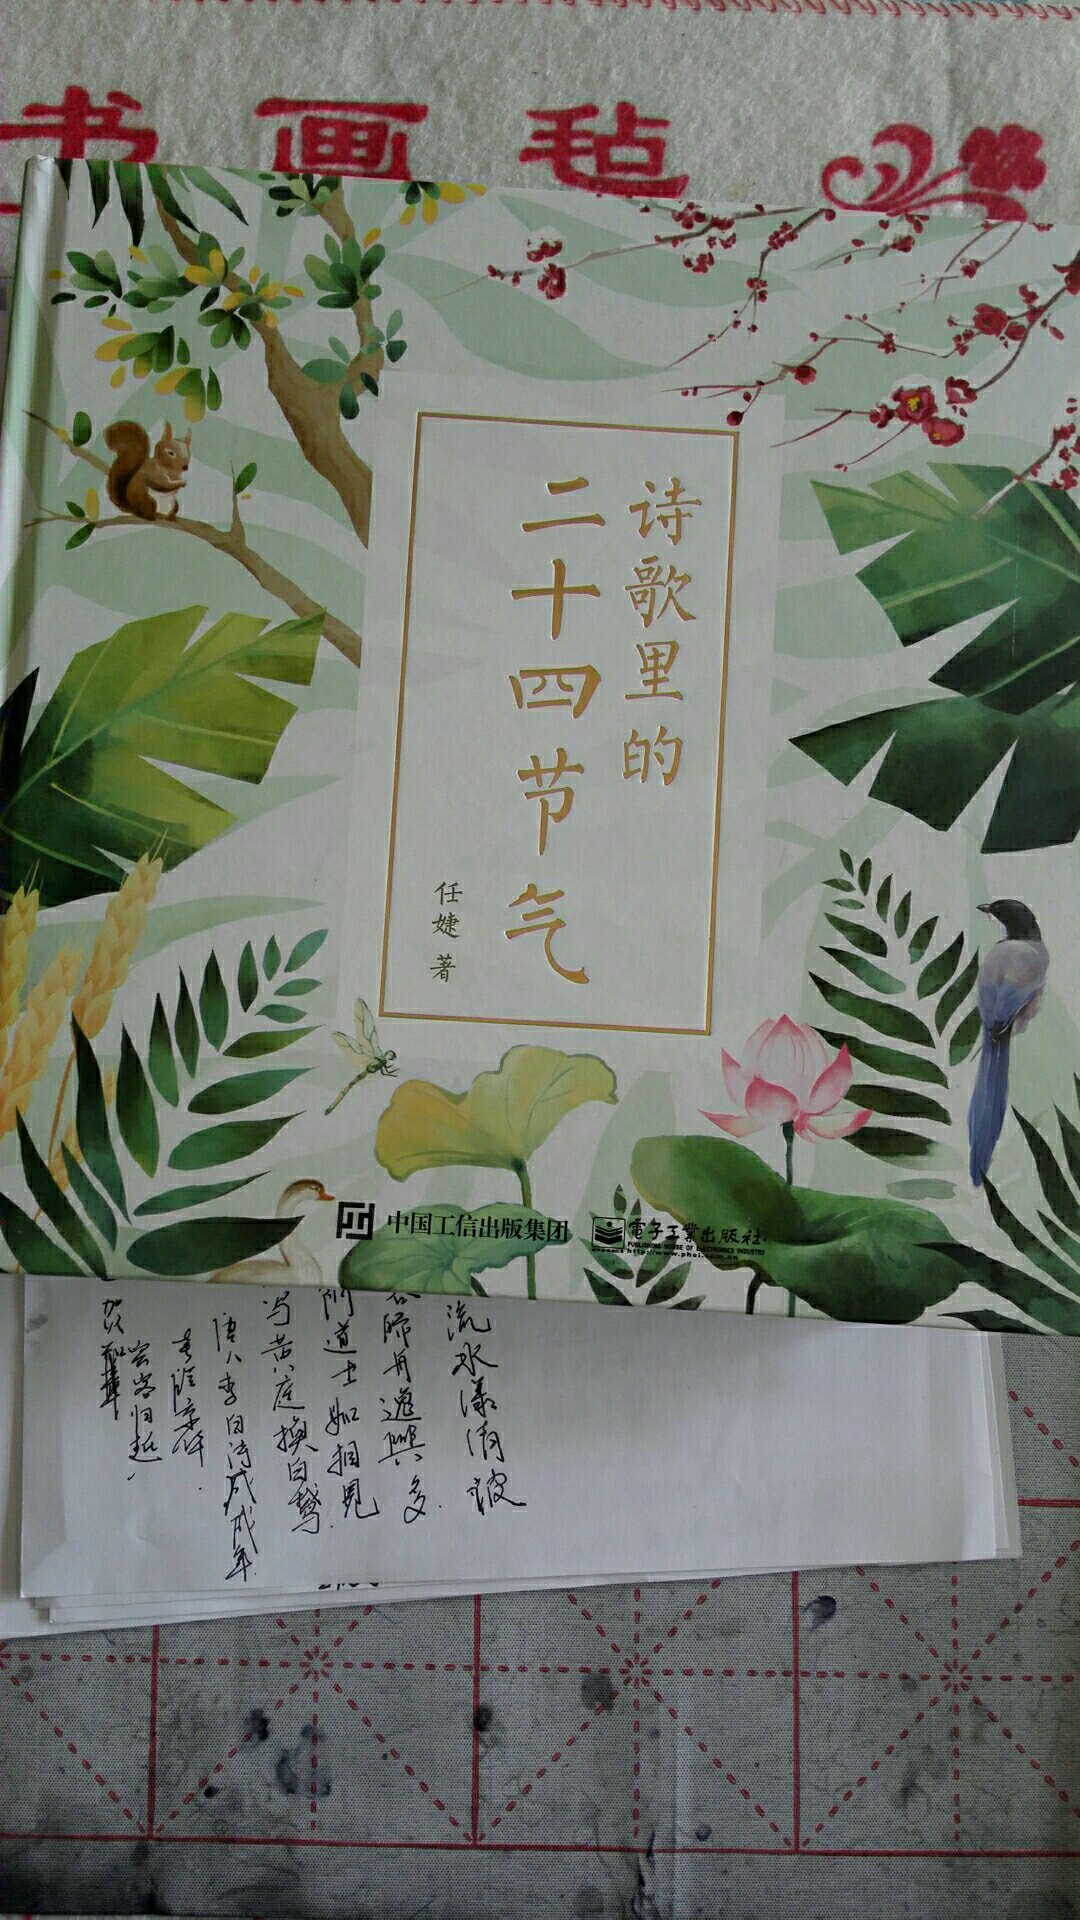 书画毡
诗歌里的
二十四节气
任婕 著
中国工信出版集团
電子工業出版社
PUBLISHING HOUSE OF ELECTRONICS INDUSTRY
http://www.phei.com.cn
流水漾清波
歸舟逸興多
道士如相見
写黄庭換白鵝
唐人李白诗戊戌年